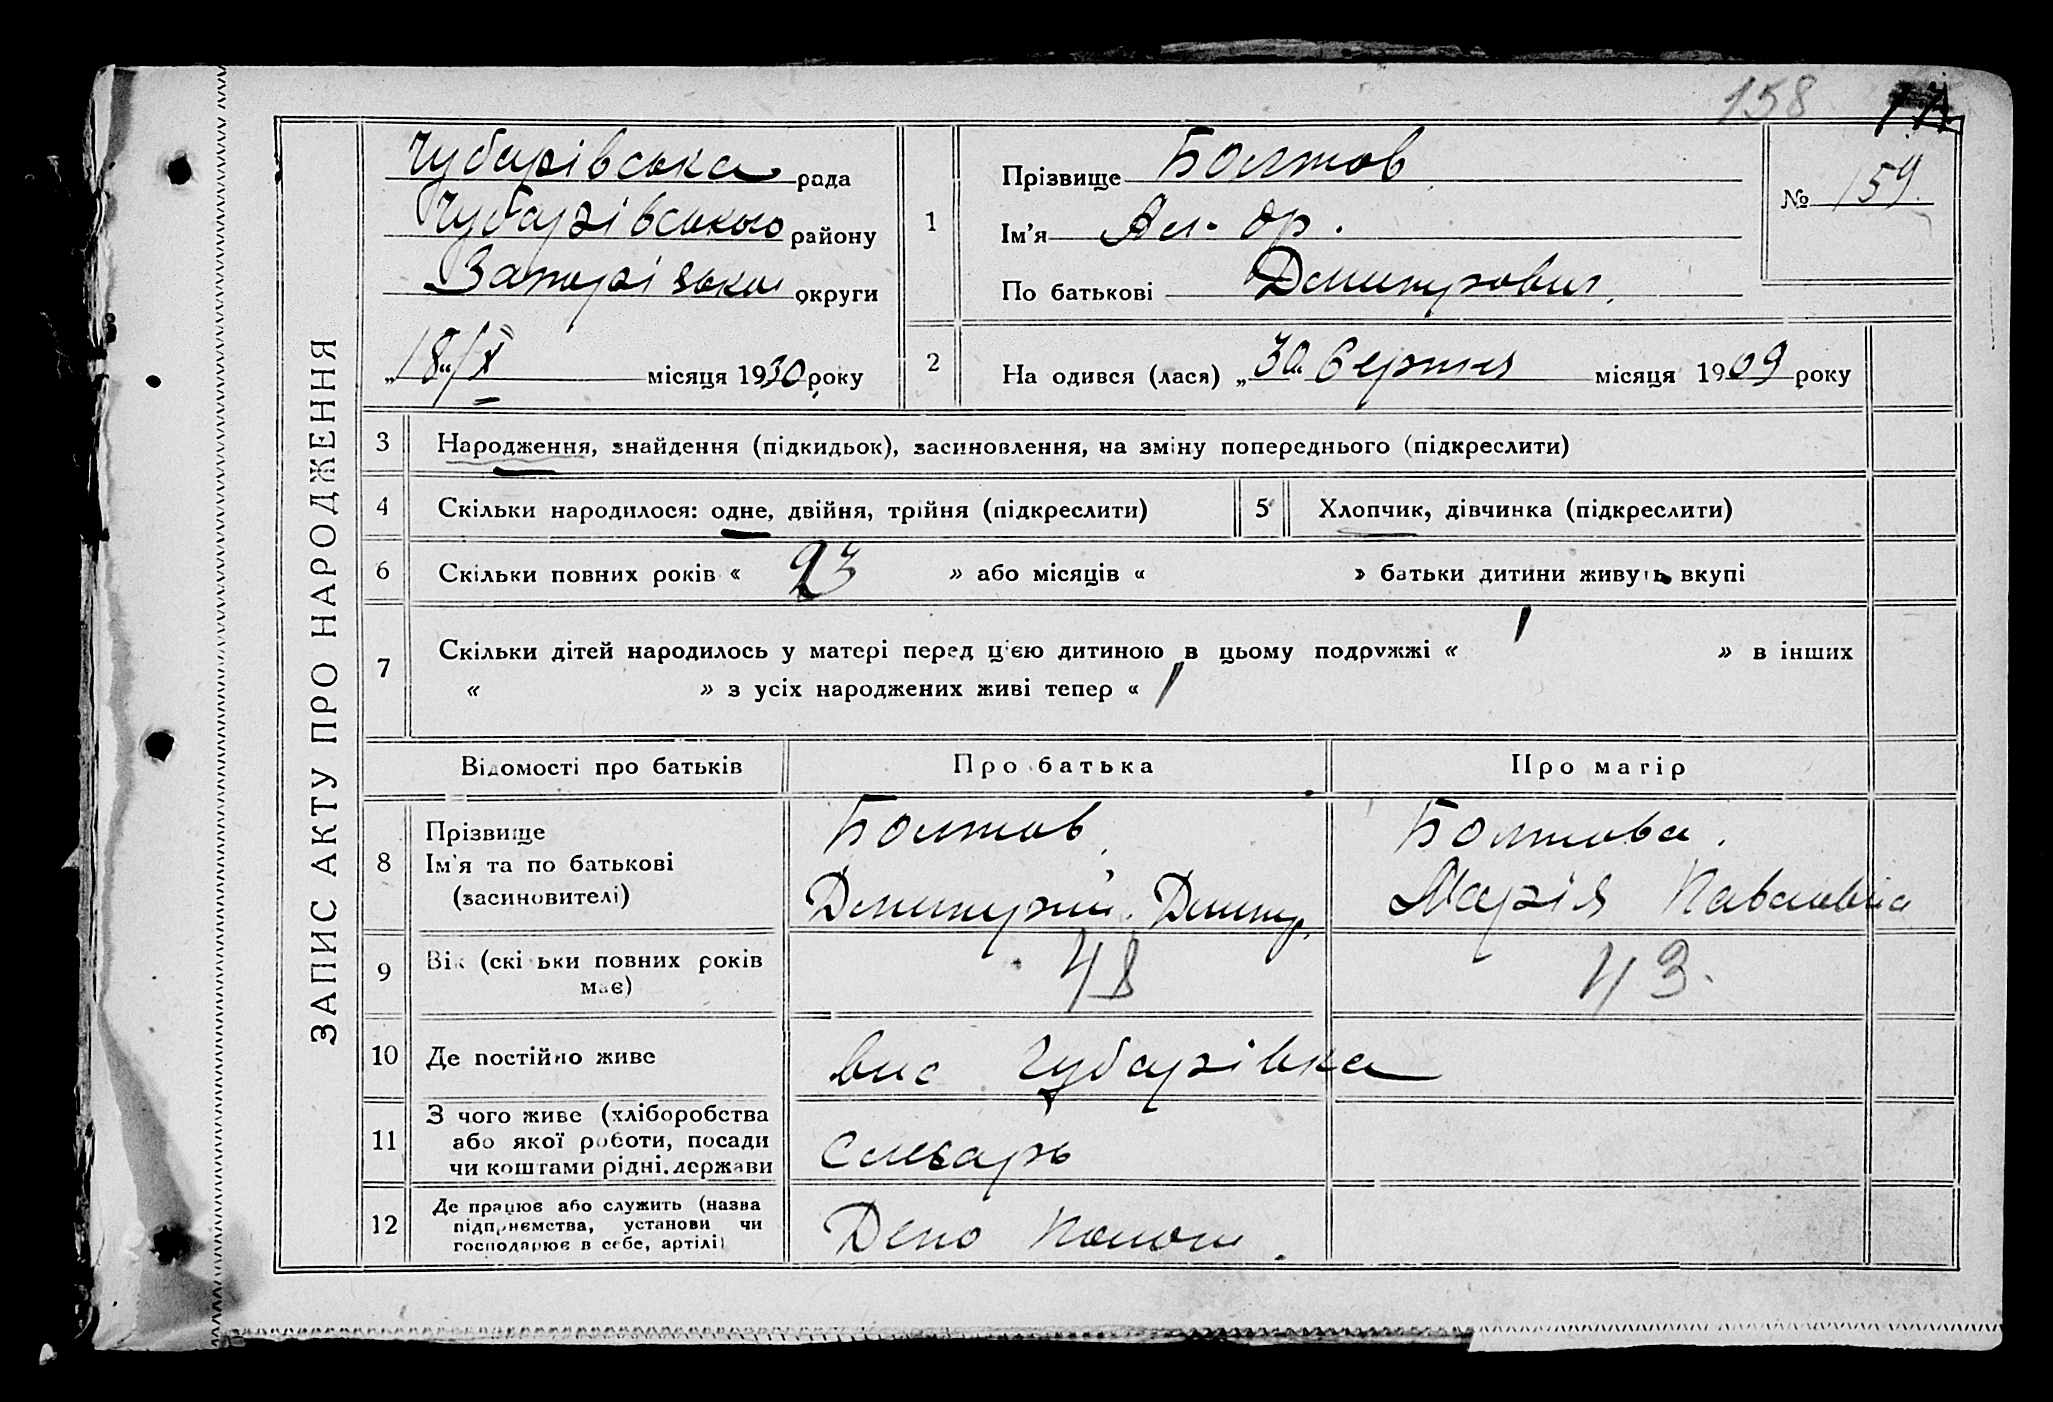 158
ЗАПИС АКТУ ПРО НАРОДЖЕННЯ
Чубарівська рада
Чубарівського району
Запорізької округи
„18“/X місяця 1930 року
1
Прізвище Болтов
Ім'я
По батькові Дмитрович
№ 159
2
На одився (лася) „30“ березня місяця 1909 року
3 Народження, знайдення (підкидьок), засиновлення, на зміну попереднього (підкреслити)
4 Скільки народилося: одне, двійня, трійня (підкреслити) 5 Хлопчик, дівчинка (підкреслити)
6 Скільки повних років « 23 » або місяців « » батьки дитини живуть вкупі
7 Скільки дітей народилось у матері перед ц'єю дитиною в цьому подружжі « 1 » в інших
« » з усіх народжених живі тепер « 1
Відомості про батьків Про батька Про матір
8 Прізвище
Ім'я та по батькові
(засиновителі)
Болтов
Дмитрий Дмитр.
Болтова
Марія Павлівна
9 Вік (скі ьки повних років
має)
48
43
10 Де постійно живе вис Чубарівка
11 З чого живе (хліборобства
або якої роботи, посади
чи коштами рідні. держави
слюсарь
12 Де працює або служить (назва
підприємства, установи чи
господарює в себе, артілі)
Депо Пологи